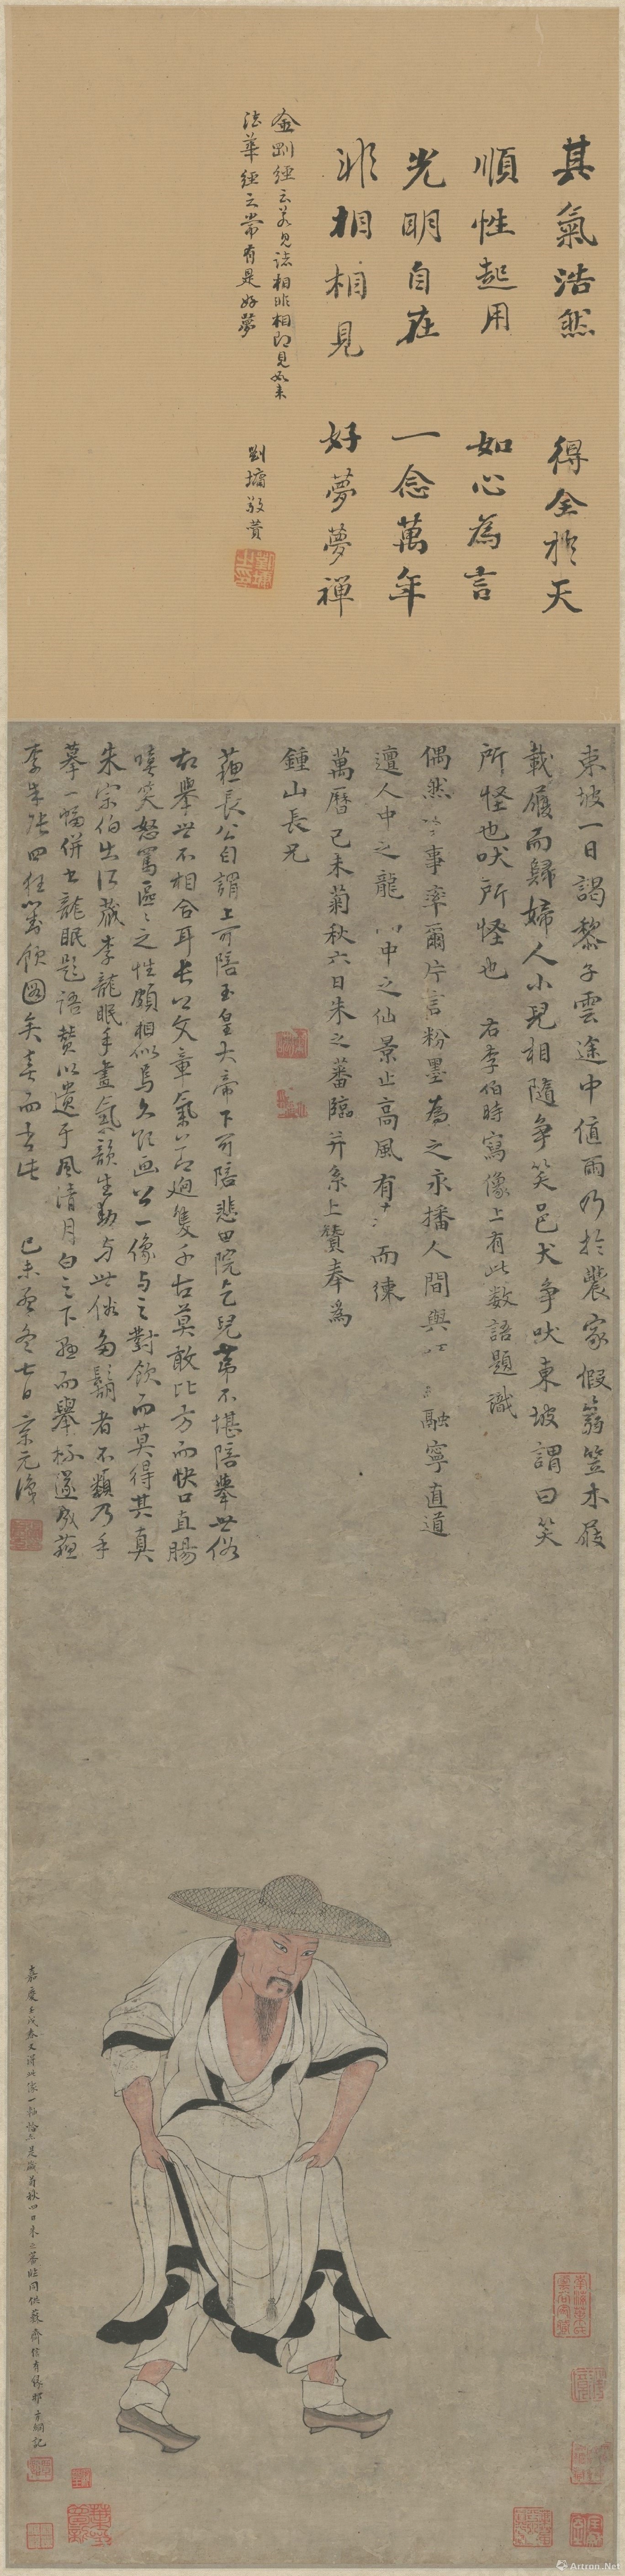 其氣浩然 得全於天
順性起用 如心為言
光明自在 一念萬年
非相相見 好夢夢禪
金剛經云若見諸相非相即見如来
法華經云常有是好夢
劉墉敬贊
東坡一日謁黎子雲途中值雨乃於農家假篛笠木屐
載履而歸婦人小兒相隨争笑邑犬争吠東坡謂曰笑
所怪也吠所怪也 右李伯時寫像上有此数語題識
偶然 事率爾片言粉墨為之永播人間與 融寧直道
邅人中之龍 中之仙景止高風有 而徠
萬曆己未菊秋六日朱之蕃臨并系上贊奉為
鍾山長兄
蘓長公自謂上可陪玉皇大帝下可陪悲田院乞兒苐不堪陪舉世俗
故舉世不相合耳長公文章氣節迥隻千古莫敢比方而快口直腸
嘻笑怒罵區々之性頗相似焉久欲画公一像与之對飲而莫得其真
朱宗伯出所蔵李龍眠手畫氣韻生動与世俗多鬍者不類乃手
摹一幅併书龍眠題語贊以遺于風清月白之下 而舉杯遂成蘓
李朱 四狂對飲圖矣 而书此 己未 冬七日 元
嘉慶壬戌春又得此像一軸恰亦是歲菊秋四日朱之蕃臨同供蘇齋信有緣耶方綱記
Artron.Net